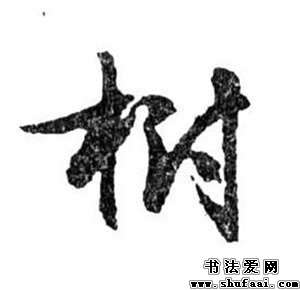 树
书法爱网
www.shufaai.com